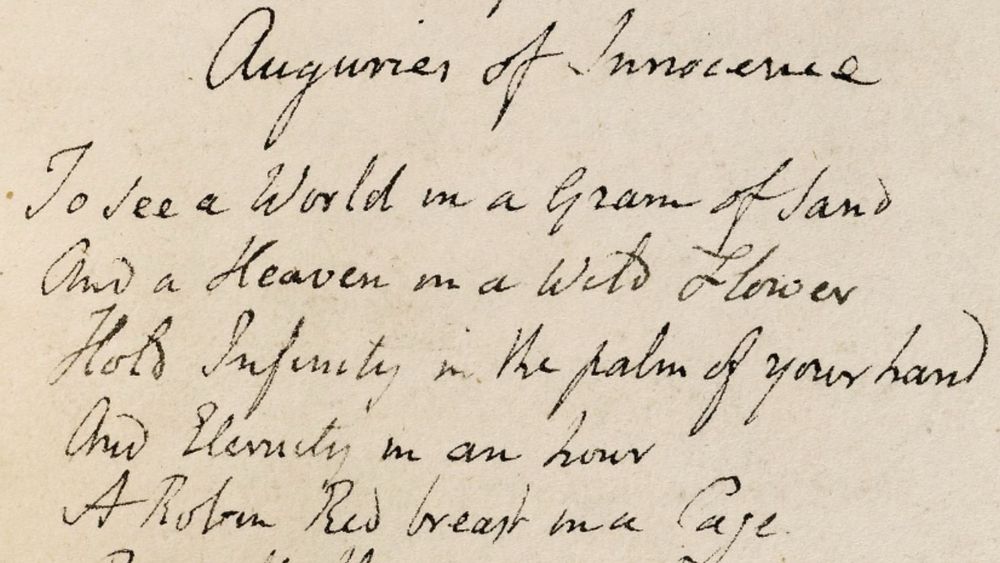 Auguries of Innocence
To see a World in a Grain of Sand
And a Heaven in a Wild Flower
Hold Infinity in the palm of your hand
And Eternity in an hour
A Robin Red breast in a Cage